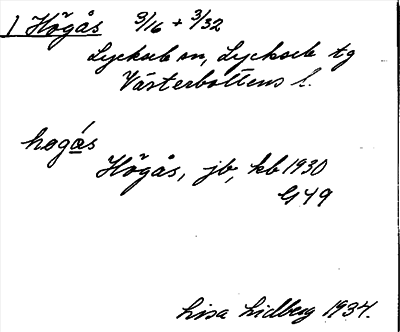 1 Högås 3/16 + 3/32
Lycksele sn, Lycksele tg
Västerbottens l.
hogás
Högås, jb, kb 1930
G49
Lisa Lidberg 1934.